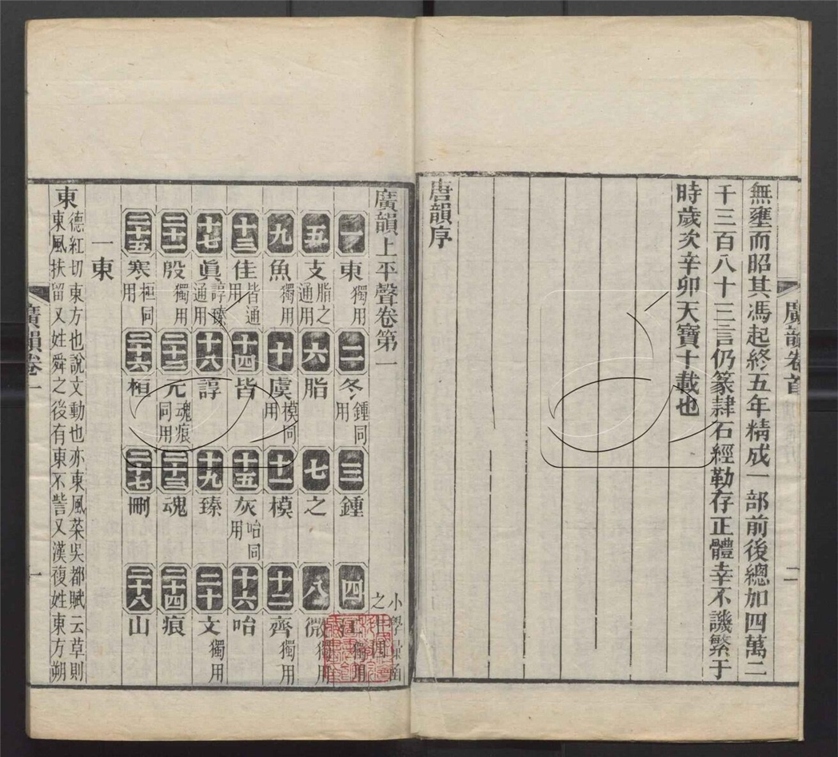 廣韻卷首
二
無壅而昭其馮起終五年精成一部前後總加四萬二
千三百八十三言仍篆隷石經勒存正體幸不譏繁于
時歲次辛卯天寶十載也
唐韻序
廣韻上平聲卷第一
小學彙函
之十四
一東獨用 二冬鍾同用 三鍾 四江獨用
五支脂之通用 六脂 七之 八微獨用
九魚獨用 十虞模同用 十一模 十二齊獨用
十三佳皆通用 十四皆 十五灰咍同用 十六咍
十七眞諄臻通用 十八諄 十九臻 二十文獨用
二十一殷獨用 二十二元魂痕同用 二十三魂 二十四痕
二十五寒桓同用 二十六桓 二十七刪 二十八山
一東
東德紅切東方也說文動也亦東風菜吳都賦云草則
東風扶留又姓舜之後有東不訾又漢複姓東方朔
廣韻卷一
一